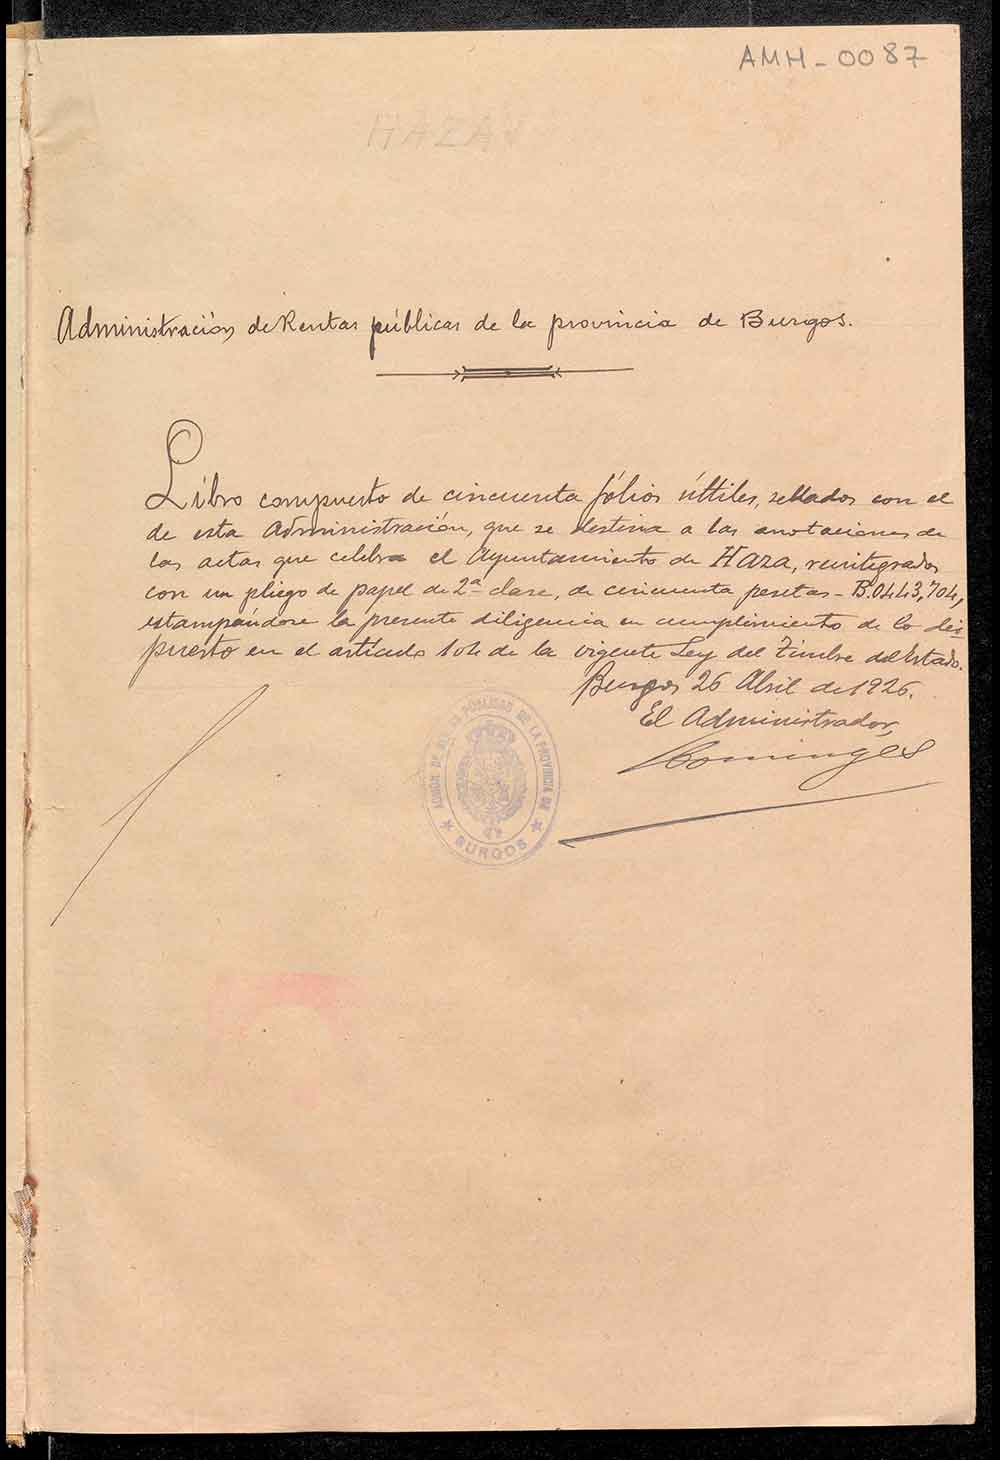 AMH-0087
HAZA
Administración de Rentas públicas de la provincia de Burgos.
Libro compuesto de cincuenta fólios úttiles, sellados con el
de esta Administración, que se destina a las anotaciones de
las actas que celebra el Ayuntamiento de Haza, reintegrados
con un pliego de papel de 2ª clase, de cincuenta pesetas - B.0443,704,
estampándose la presente diligencia en cumplimiento de lo dis-
puesto en el artículo 104 de la vigente Ley del Timbre del Estado.
Burgos 26 Abril de 1926.
El Administrador,
DE LA PROVINCIA DE
★ BURGOS ★